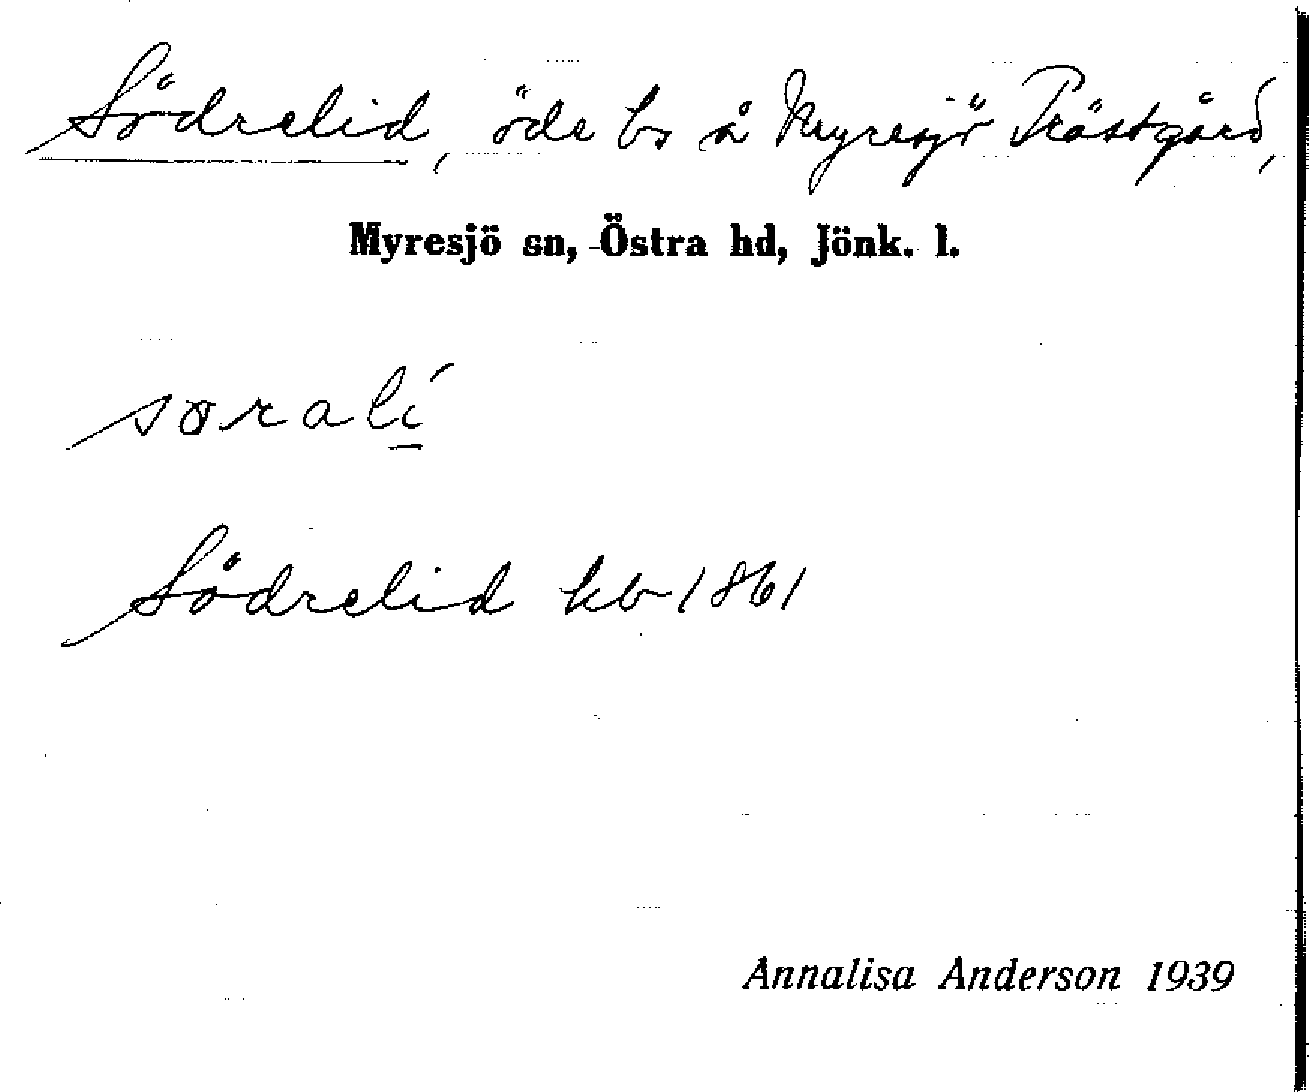 Södrelid, öde bs å Myresjö Prästgård,
Myresjö sn, Östra hd, Jönk. l.
søralí
Södrelid kb 1861
Annalisa Anderson 1939